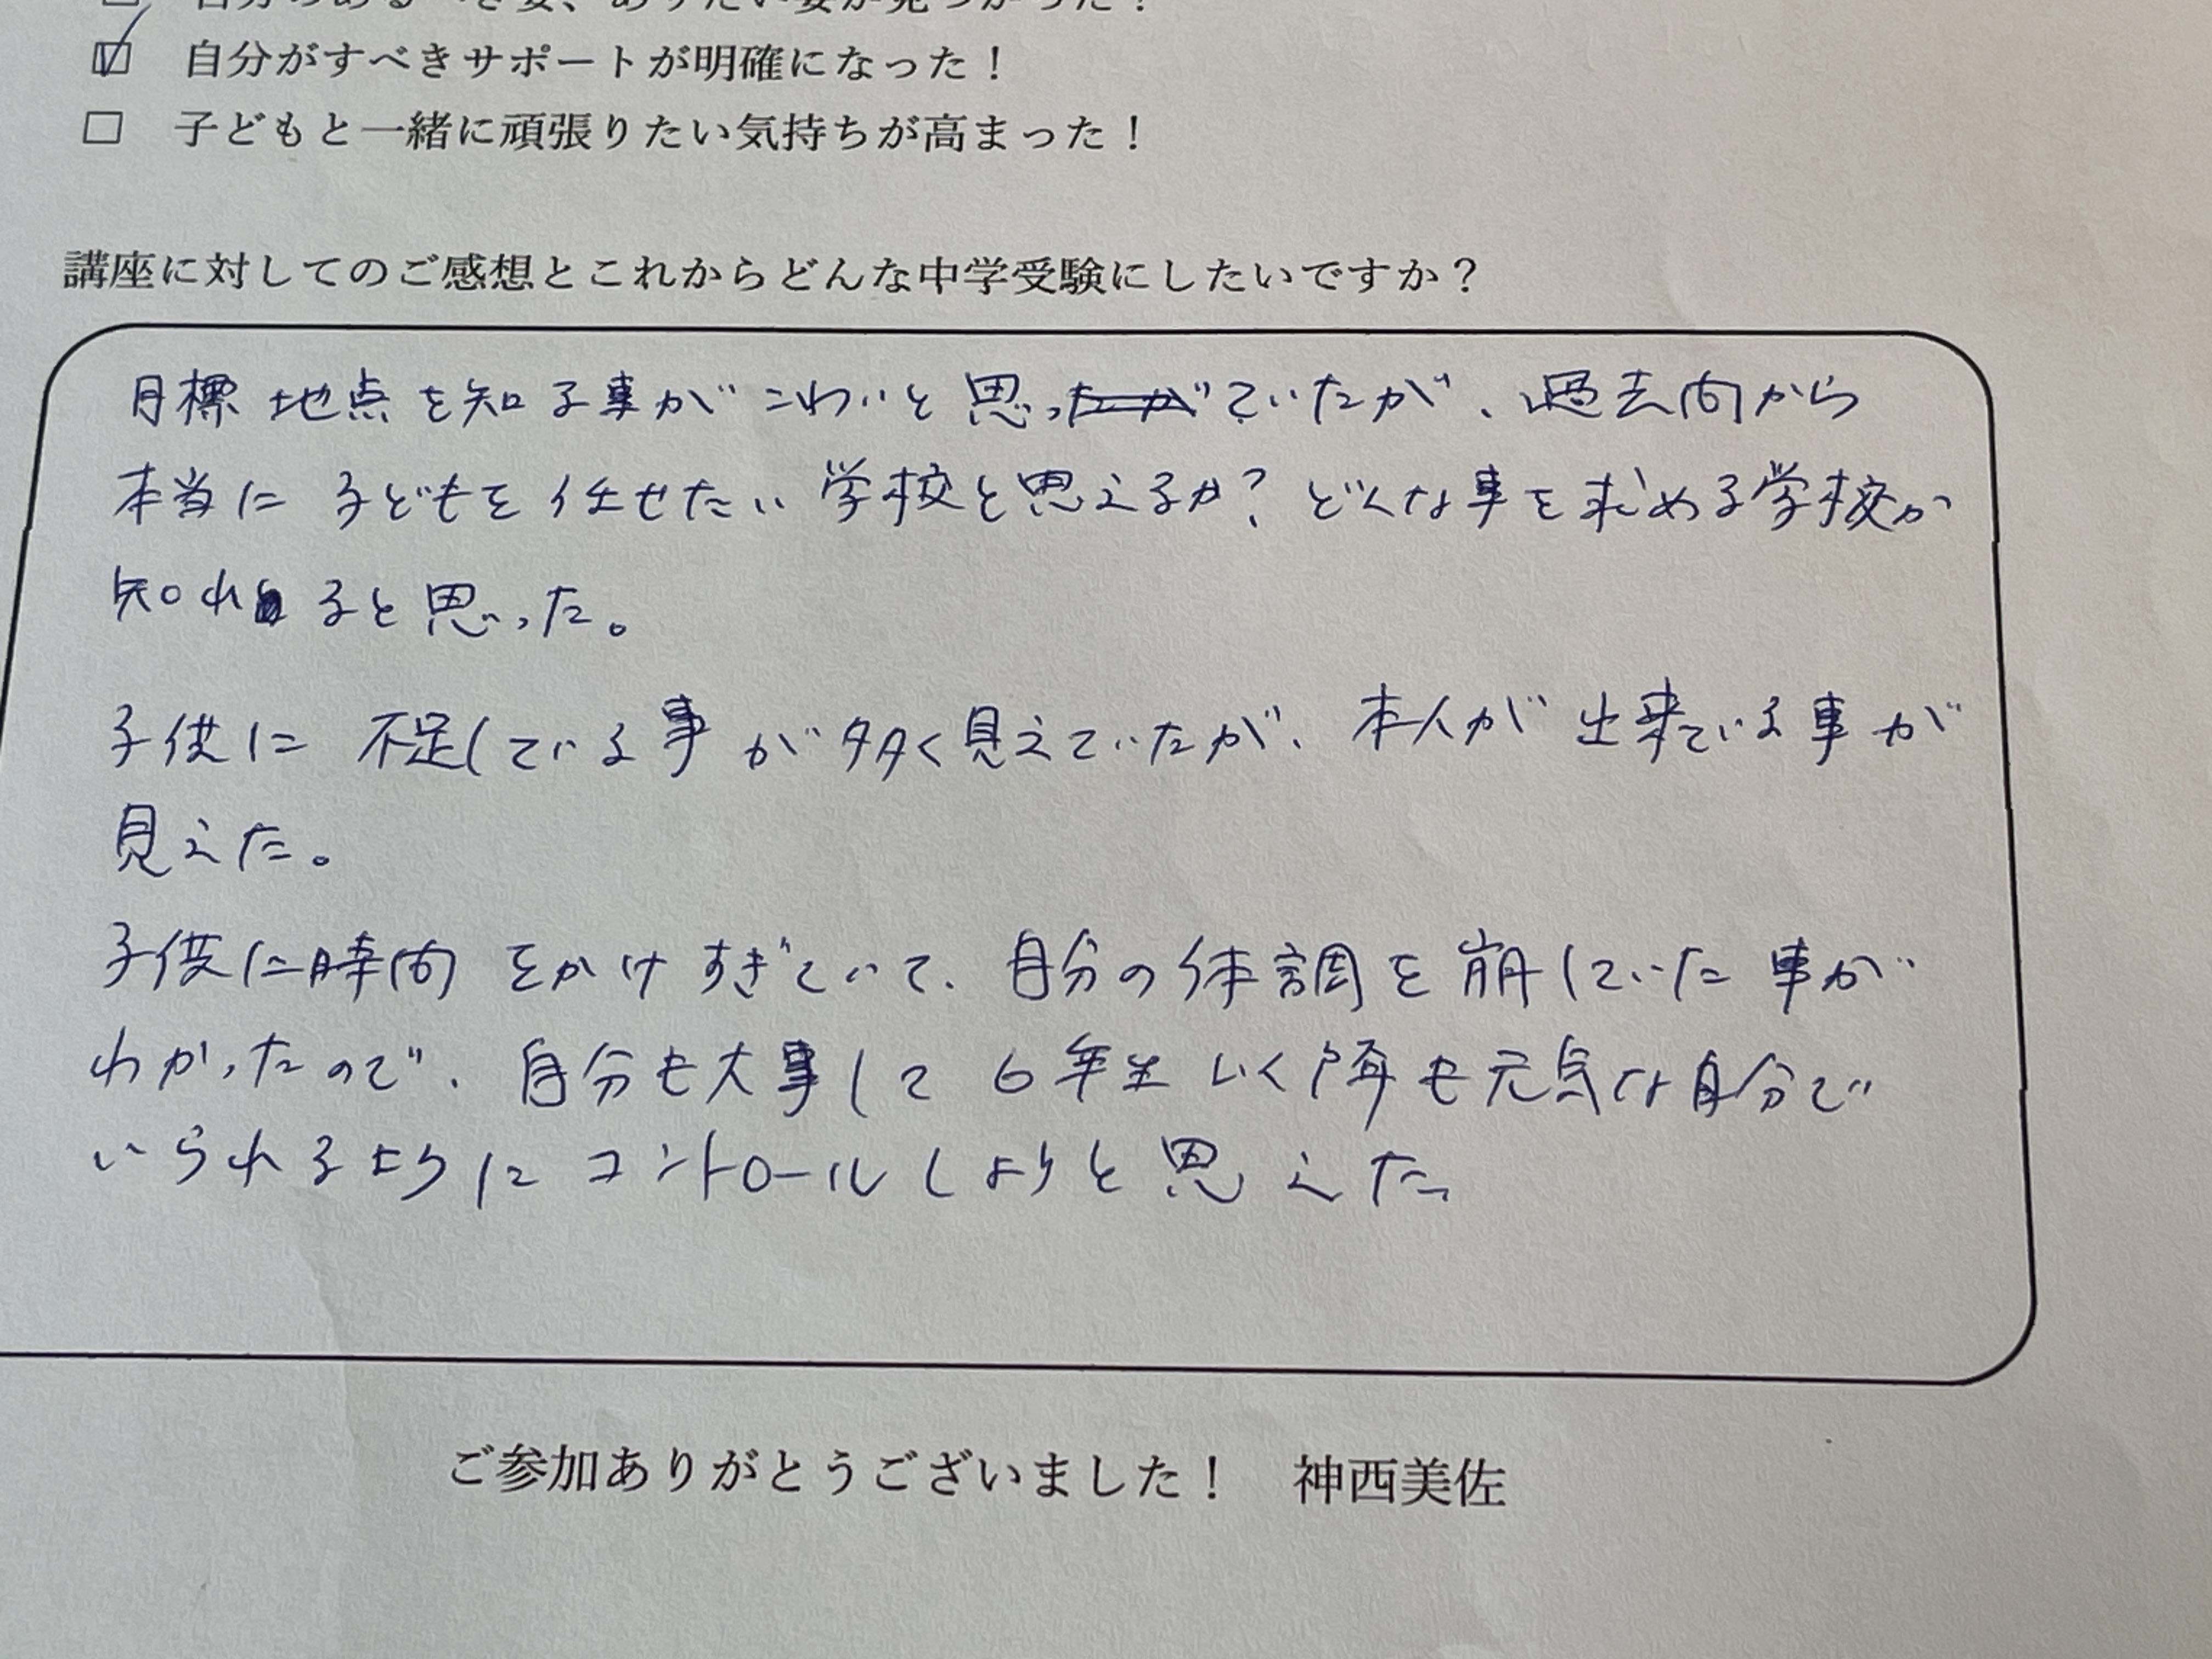 自分のあるべき姿、ありたい姿が見つかった！
自分がすべきサポートが明確になった！
子どもと一緒に頑張りたい気持ちが高まった！
講座に対してのご感想とこれからどんな中学受験にしたいですか？
目標地点を知る事がこわいと思ったがていたが、過去問から
本当に子どもを任せたい学校と思えるか？どんな事を求める学校か
知れると思った。
子供に不足している事が多く見えていたが、本人が出来ている事が
見えた。
子供に時間をかけすぎていて、自分の体調を崩していた事が
わかったので、自分も大事して6年生いく降も元気な自分で
いられるようにコントロールしようと思えた
ご参加ありがとうございました！　神西美佐